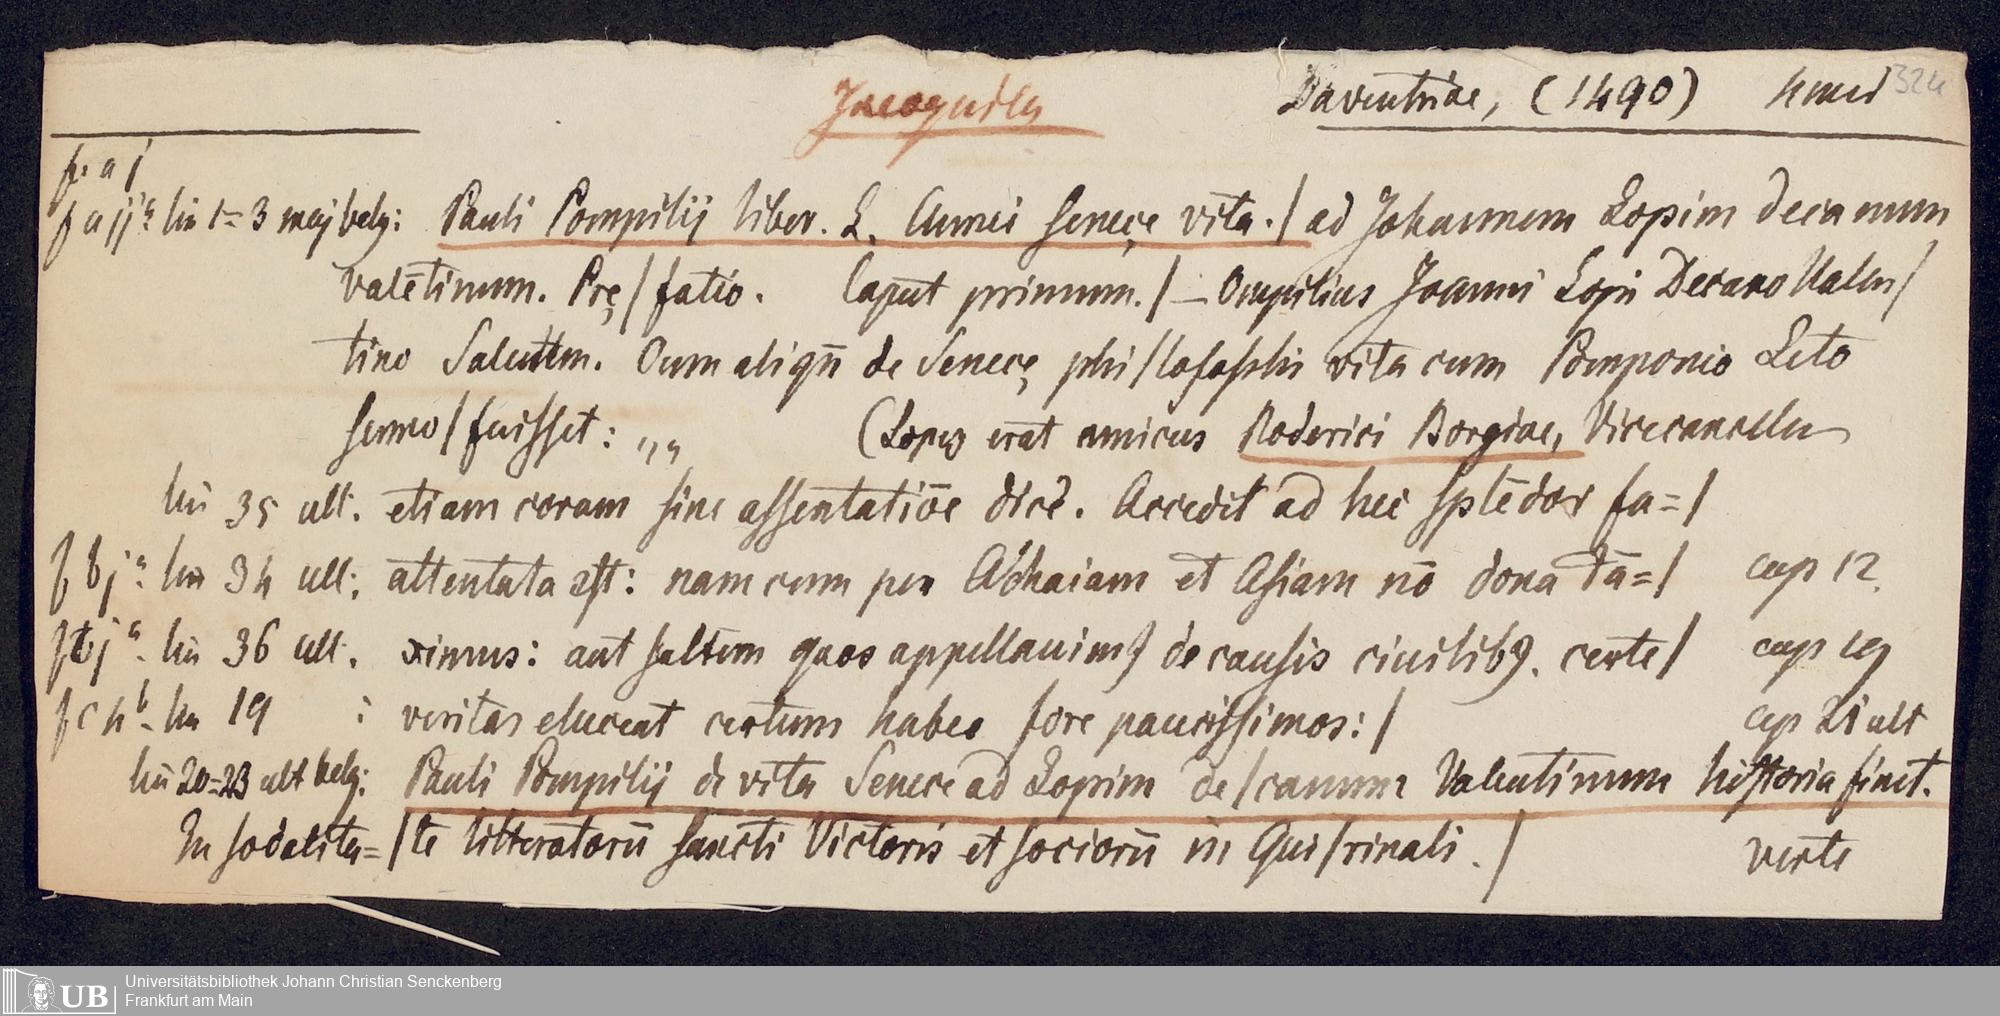 Daventriae, (1490) 324
f. a j
f a ij a lin 1 = 3 maj belg: Pauli Pompilij liber. L. Annei Seneçe vita. / ad Johannem Lopim decanum
valētinum. Prę / fatio. Caput primum. / — Ompilius Joanni Lopi Decano Valen /
tino Salutem. Cum aliqñ de Senecę phi / losophi vita cum Pomponio Leto
sermo / fuisset: „ „ (Lopez erat amicus Roderici Borgiae, Vicecancellar
lin 35 ult. etiam coram sine assentatiōe dicē. Accedit ad hec splēdor fa= /
f b j a lin 34 ult: attentata est: nam cum per Achaiam et Asiam nō dona tā= / cap 12.
f j a lin 36 ult. ximus: aut saltem quos appellauim9 de causis ciuilib9. certe / cap 19
f c b lin 19 : veritas eluceat certum habeo fore paucissimos: / cap 21 ult
lin 20=23 ult belg: Pauli Pompilij de vita Senece ad Lopim de / canum Valentinum historia finit.
In sodalita= / te litteratorū Sancti Victoris et sociorū in Qui / rinali. / verte
Universitätsbibliothek Johann Christian Senckenberg
UB Frankfurt am Main